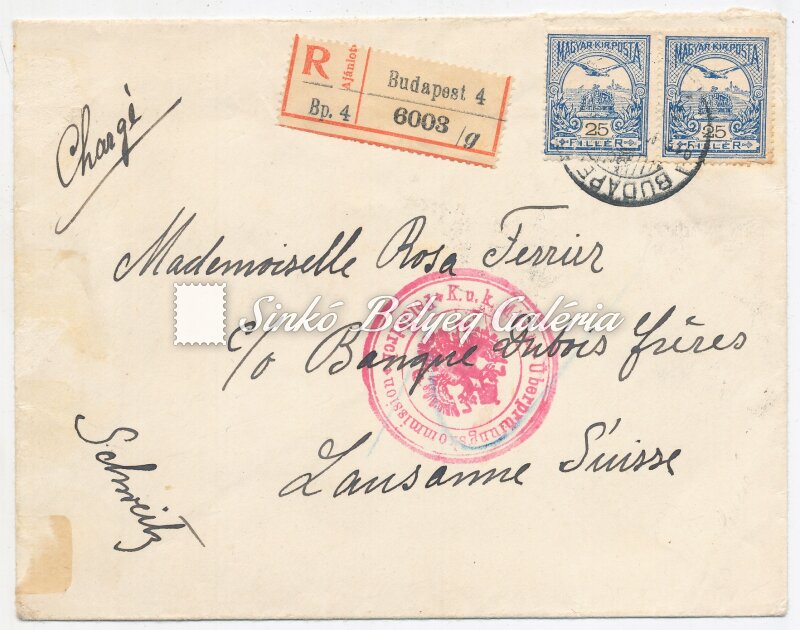 R Ajánlott
Budapest 4
Bp. 4
6003 /g
MAGYAR KIR. POSTA
25
FILLÉR
MAGYAR KIR. POSTA
25
FILLÉR
BUDAPE
Chargé
Mademoiselle Rosa Ferrier
Sinkó Bélyeg Galéria
c/o Banque Dubois frères
Lausanne Suisse
Schweitz
K. u. k.
Überprüfungskommission